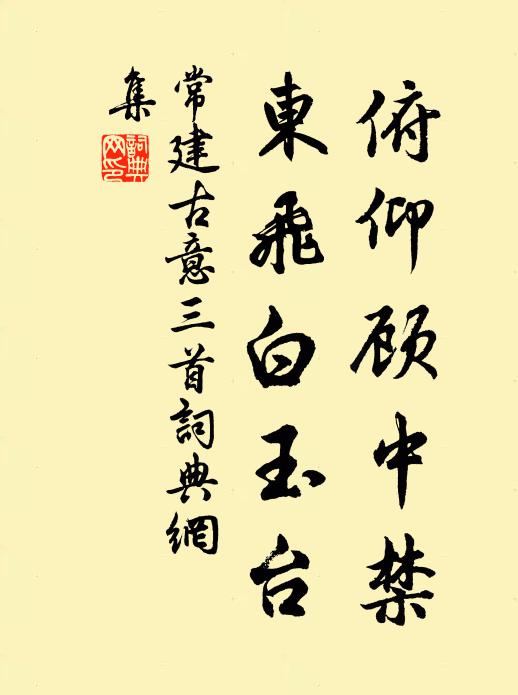 俯仰顾中禁
東飛白玉台
常建古意三首詞典網
集
詞典
网印